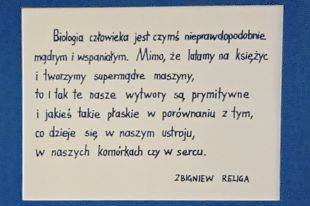 Biologia człowieka jest czymś nieprawdopodobnie
mądrym i wspaniałym. Mimo, że latamy na księżyc
i tworzymy supermądre maszyny,
to i tak te nasze wytwory są prymitywne
i jakieś takie płaskie w porównaniu z tym,
co dzieje się w naszym ustroju,
w naszych komórkach czy w sercu.
ZBIGNIEW RELIGA